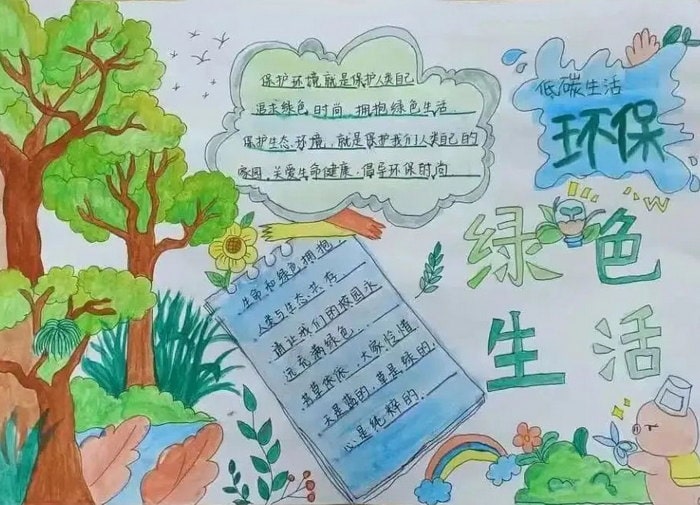 保护环境就是保护人类自己
追求绿色时尚拥抱绿色生活
保护生态环境，就是保护我们人类自己的
家园,关爱生命健康,倡导环保时尚
低碳生活
环保
绿色
生活
生命和绿色拥抱
人类与生态共存
请让我们的校园永
远充满绿色...
芳草依依,大家怜惜
天是蓝的,草是绿的,
心是纯粹的.